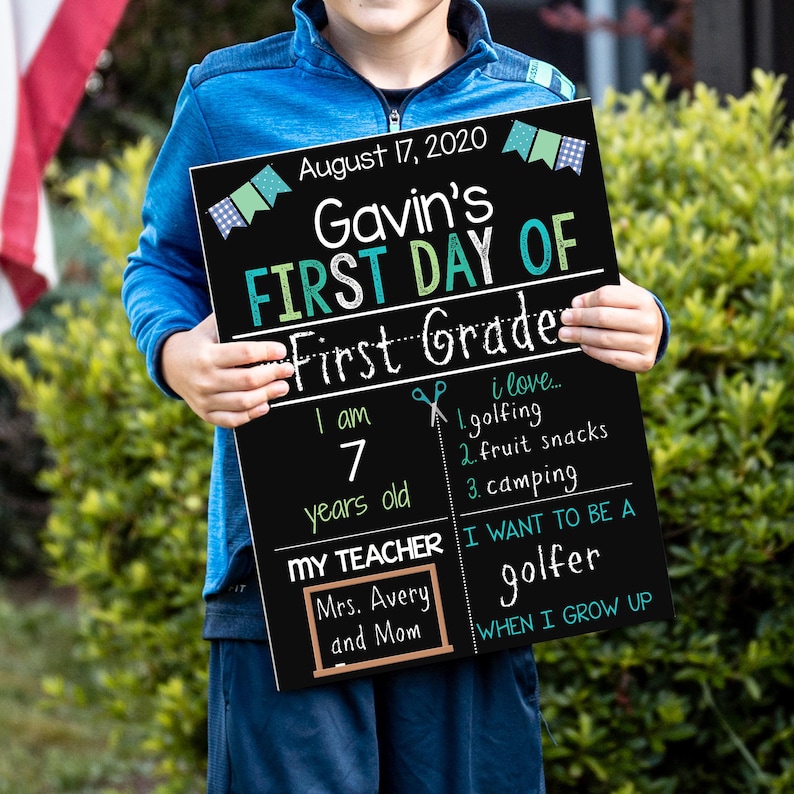 August 17, 2020
Gavin's
FIRST DAY OF
First Grade
I am
7
years old
i love...
1. golfing
2. fruit snacks
3. camping
MY TEACHER
Mrs. Avery
and Mom
I WANT TO BE A
golfer
WHEN I GROW UP